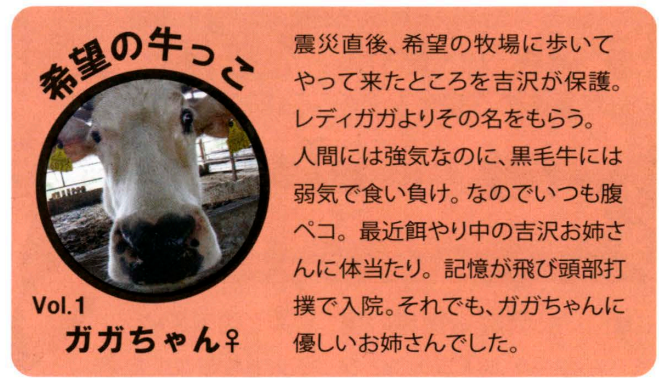 希望の牛っこ
Vol.1
ガガちゃん♀
震災直後、希望の牧場に歩いて
やって来たところを吉沢が保護。
レディガガよりその名をもらう。
人間には強気なのに、黒毛牛には
弱気で食い負け。なのでいつも腹
ペコ。最近餌やり中の吉沢お姉さ
んに体当たり。記憶が飛び頭部打
撲で入院。それでも、ガガちゃんに
優しいお姉さんでした。